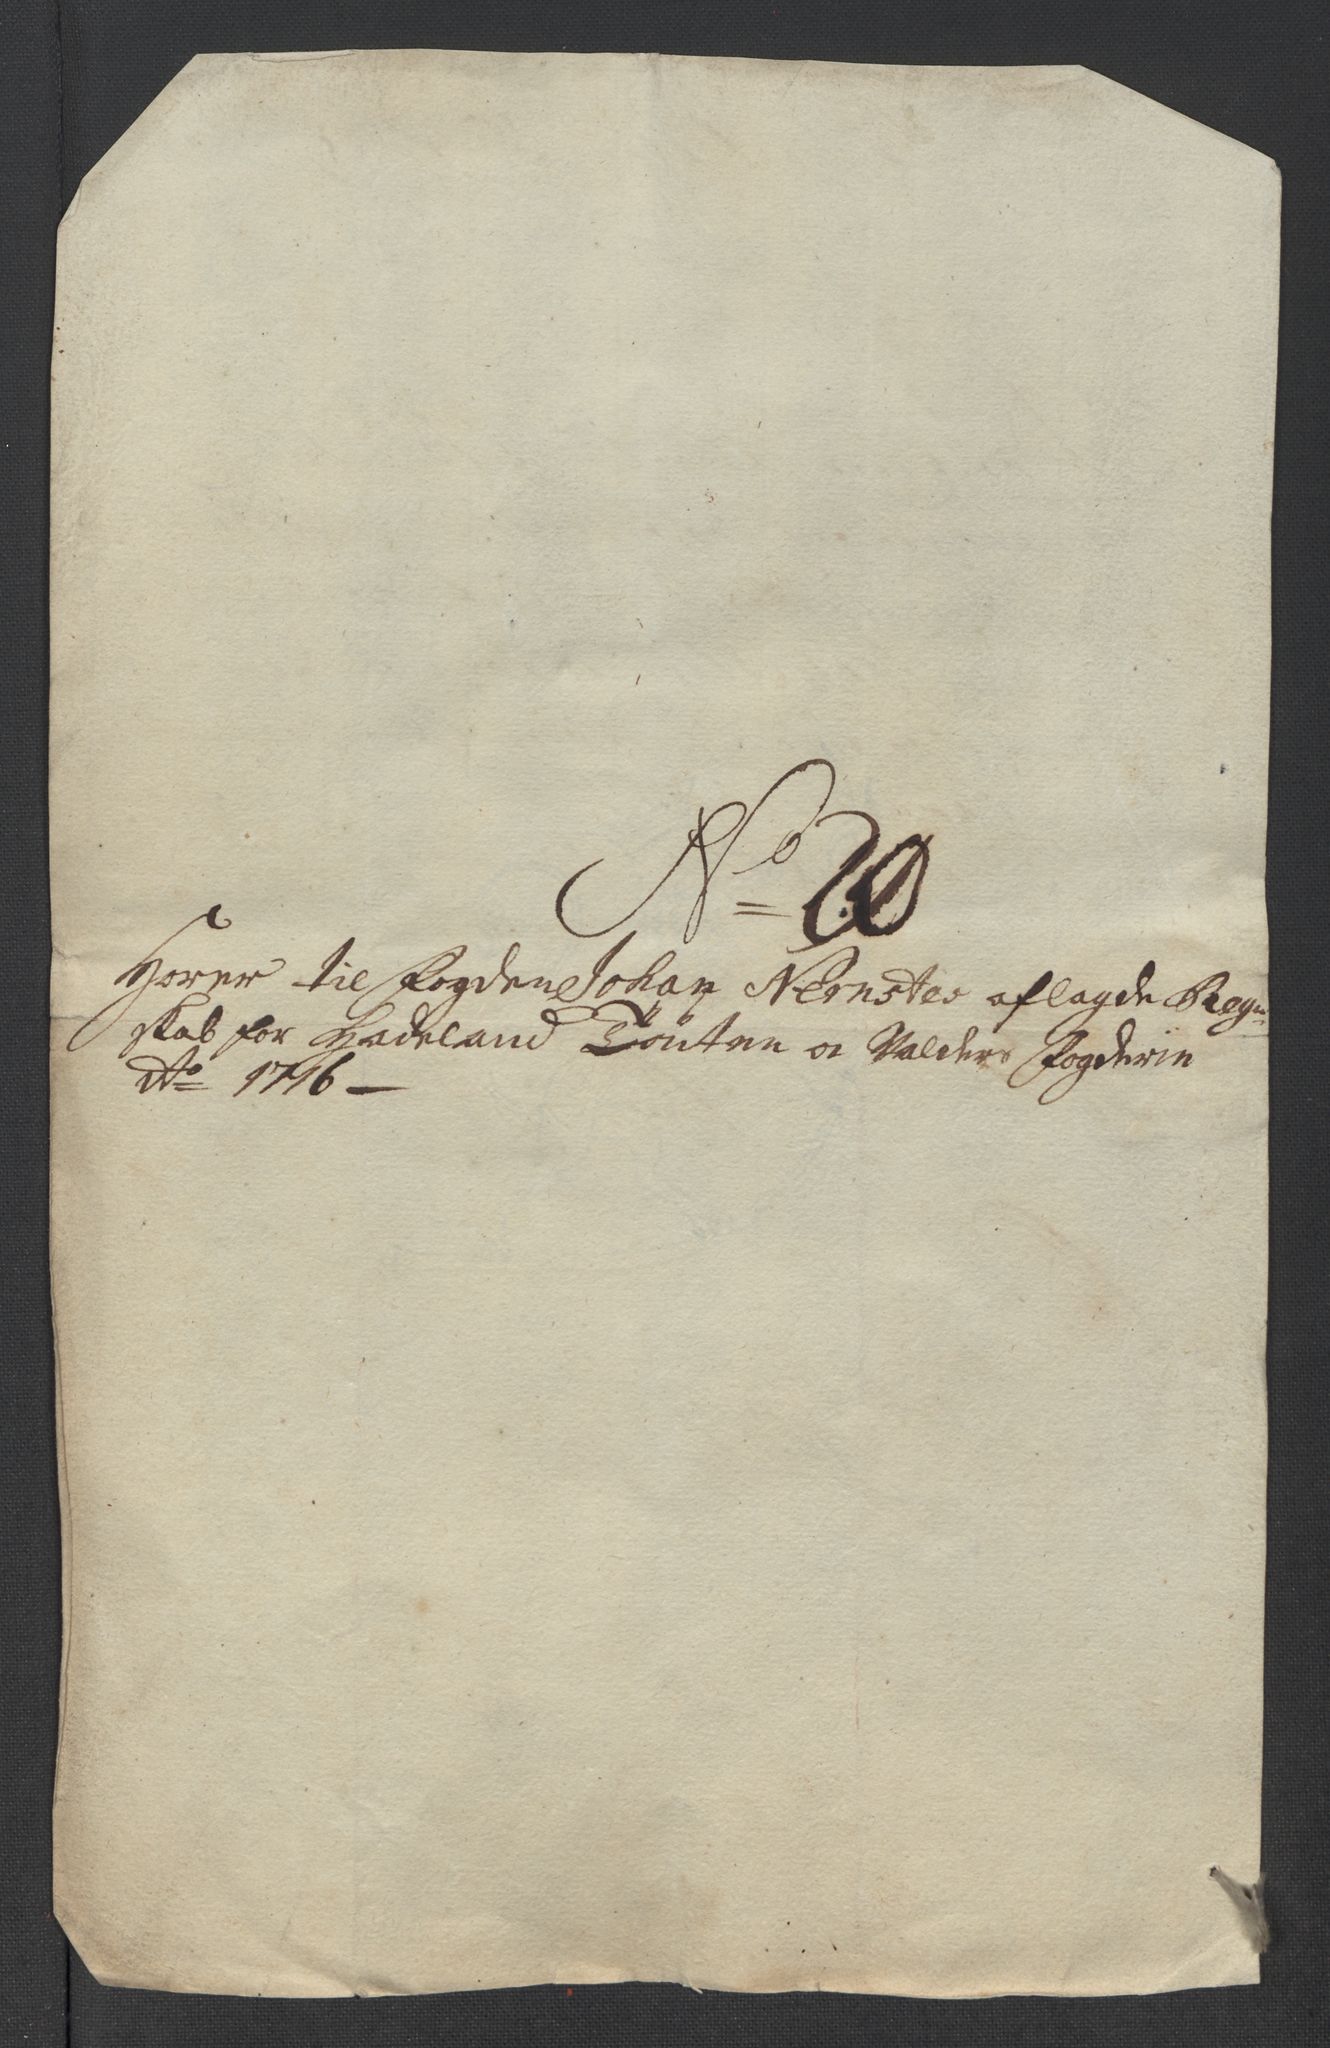 No 20
Hörer til Fogden Johan Nernstes aflagde Regn-
skab for Hadeland Töüten oc Valders Fogderie
Ao 1716